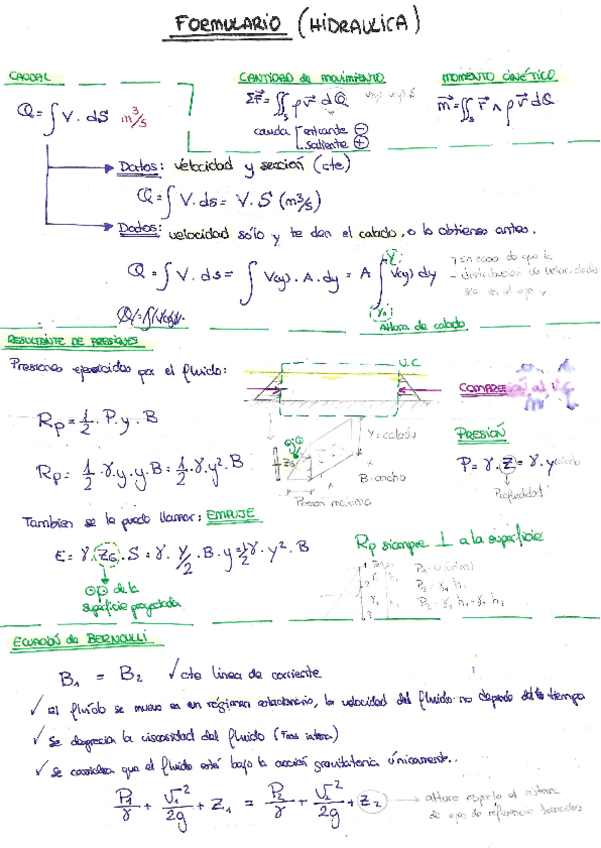 FORMULARIO (HIDRAULICA)
CAUDAL
Q = ∫ V. dS m³/s
CANTIDAD de movimiento
ΣF⃗ = ∬s ρ v⃗ dQ
caudal entrante ⊖
saliente ⊕
MOMENTO CINÉTICO
m⃗ = ∬s r⃗ ∧ ρ v⃗ dQ
Datos: velocidad y sección (cte)
Q = ∫ V. ds = V. S (m³/s)
Datos: velocidad sólo y te dan el calado, o lo obtienes antes.
Q = ∫ V. ds = ∫ V(y). A. dy = A ∫ V(y) dy
en caso de que la
distribución de velocidades
sea en el eje y
Altura de calado
RESULTANTE DE PRESIONES
Presiones ejercidas por el fluido:
V.C
Rp = 1/2 . P. y . B
Rp = 1/2 . γ. y. y. B = 1/2 . γ. y². B
Y = calado
B = ancho
Presión máxima
PRESIÓN
P = γ. Z = γ. y
Profundidad
También se le puede llamar: EMPUJE
E = γ. ZG. S = γ. y/2 . B. y = 1/2 γ. y². B
de la
superficie proyectada
Rp siempre ⊥ a la superficie
ECUACIÓN de BERNOULLI
B₁ = B₂ √ cte linea de corriente
√ El fluído se mueve en un régimen estacionario, la velocidad del fluido no depende del tiempo
√ Se desprecia la viscosidad del fluído
√ Se considera que el fluído está bajo la acción gravitatoria únicamente.
P₁/γ + V₁²/2g + Z₁ = P₂/γ + V₂²/2g + Z₂
altura respecto al sistema
de ejes de referencia